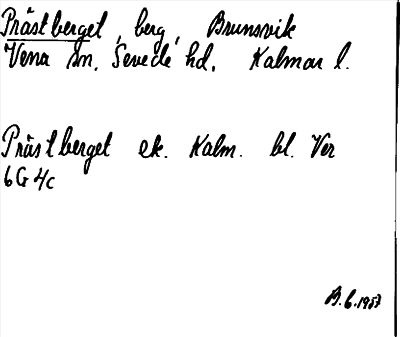 Prästberget, berg, Brunsvik
Vena sn, Sevede hd, Kalmar l.
Prästberget ek. Kalm. bl. Ver
6G 4c